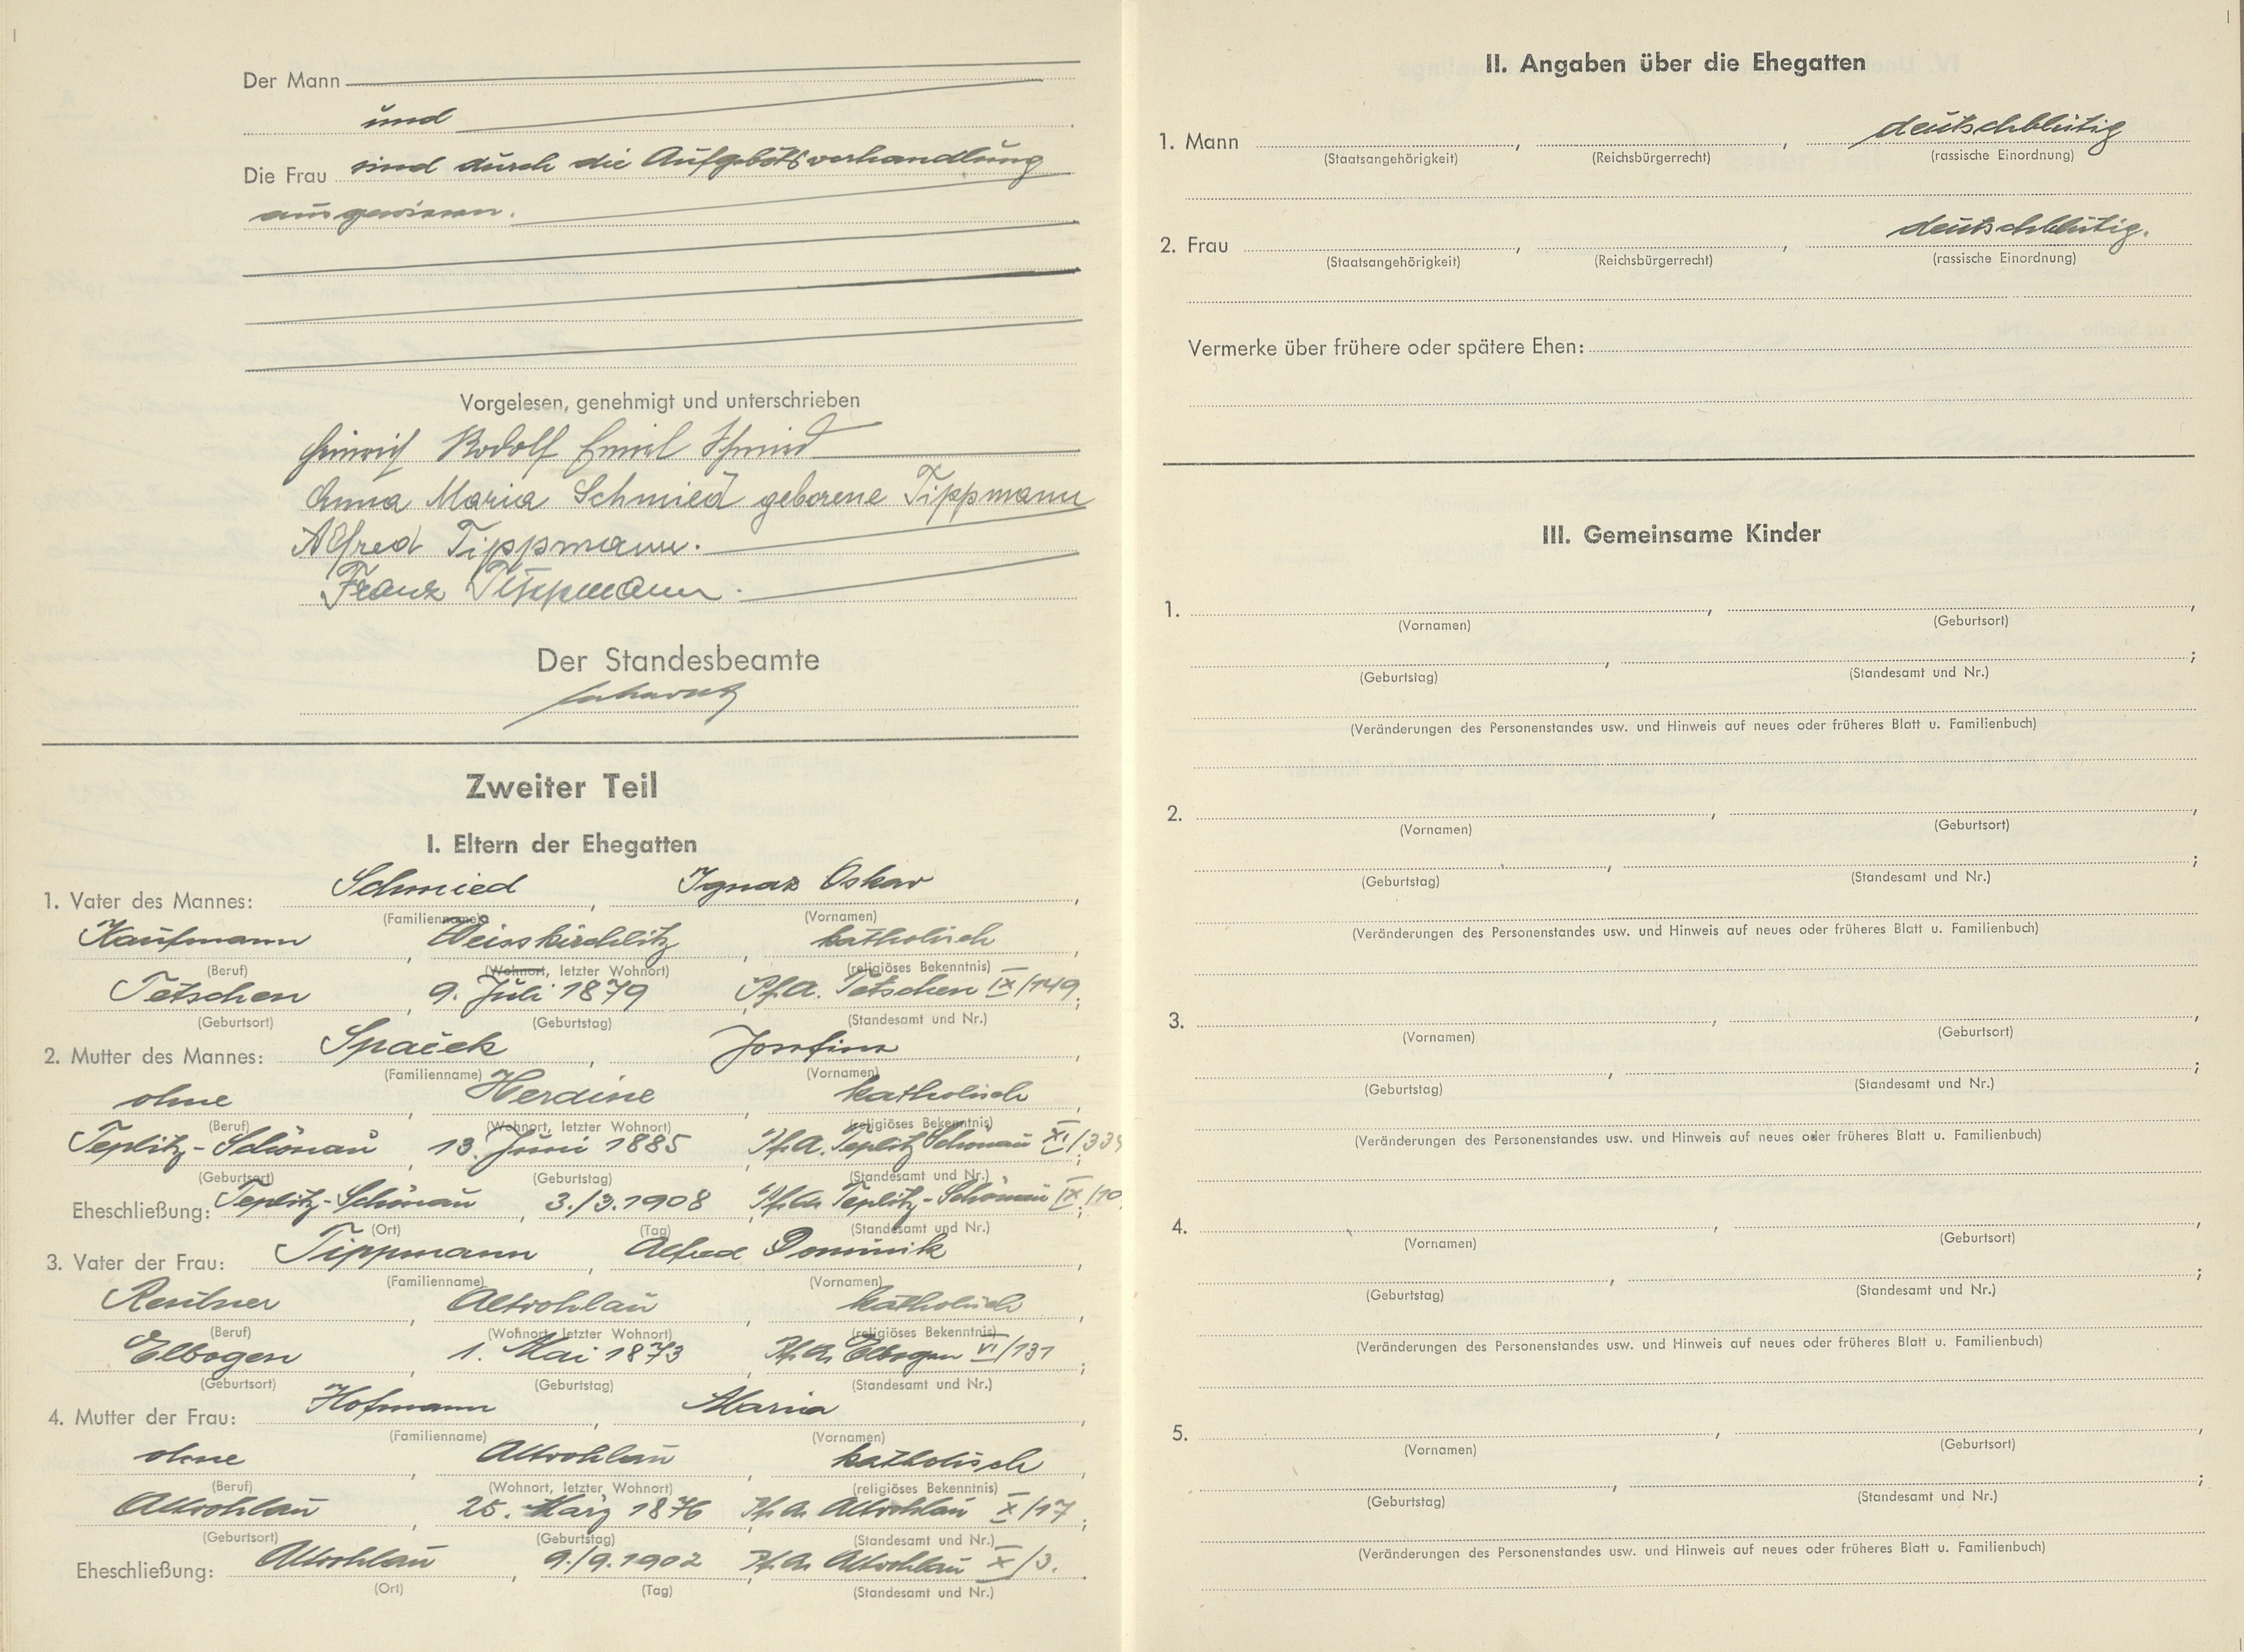 Der Mann
und
Die Frau sind durch die Aufgebotsverhandlung
ausgewiesen.
Vorgelesen, genehmigt und unterschrieben
Heinrich Rudolf Emil Schmied
Anna Maria Schmied geborene Tippmann
Alfred Tippmann.
Franz Tippmann.
Der Standesbeamte
Zweiter Teil
I. Eltern der Ehegatten
1. Vater des Mannes: Schmied, Ignaz Oskar,
(Familienname) (Vornamen)
Kaufmann, Weisskirchlitz, katholisch,
(Beruf) (Wohnort, letzter Wohnort) (religiöses Bekenntnis)
Tetschen, 9. Juli 1879, Pf.A. Tetschen IX/149;
(Geburtsort) (Geburtstag) (Standesamt und Nr.)
2. Mutter des Mannes: Spaček, Josefine,
(Familienname) (Vornamen)
ohne, Herdine, katholisch,
(Beruf) (Wohnort, letzter Wohnort) (religiöses Bekenntnis)
Teplitz-Schönau, 13. Juni 1885, Pf.A. Teplitz Schönau XI/339;
(Geburtsort) (Geburtstag) (Standesamt und Nr.)
Eheschließung: Teplitz-Schönau, 3./3.1908, Pf.A. Teplitz-Schönau IX/10
(Ort) (Tag) (Standesamt und Nr.)
3. Vater der Frau: Tippmann, Alfred Dominik,
(Familienname) (Vornamen)
Rentner, Altrohlau, katholisch,
(Beruf) (Wohnort, letzter Wohnort) (religiöses Bekenntnis)
Elbogen, 1. Mai 1873, Pf.A. Elbogen VI/131;
(Geburtsort) (Geburtstag) (Standesamt und Nr.)
4. Mutter der Frau: Hofmann, Maria,
(Familienname) (Vornamen)
ohne, Altrohlau, katholisch,
(Beruf) (Wohnort, letzter Wohnort) (religiöses Bekenntnis)
Altrohlau, 25. März 1876, Pf.A. Altrohlau X/17;
(Geburtsort) (Geburtstag) (Standesamt und Nr.)
Eheschließung: Altrohlau, 9./9.1902, Pf.A. Altrohlau X/3.
(Ort) (Tag) (Standesamt und Nr.)
II. Angaben über die Ehegatten
1. Mann , , deutschblütig
(Staatsangehörigkeit) (Reichsbürgerrecht) (rassische Einordnung)
2. Frau , , deutschblütig.
(Staatsangehörigkeit) (Reichsbürgerrecht) (rassische Einordnung)
Vermerke über frühere oder spätere Ehen:
III. Gemeinsame Kinder
1. , ,
(Vornamen) (Geburtsort)
, ;
(Geburtstag) (Standesamt und Nr.)
(Veränderungen des Personenstandes usw. und Hinweis auf neues oder früheres Blatt u. Familienbuch)
2. , ,
(Vornamen) (Geburtsort)
, ;
(Geburtstag) (Standesamt und Nr.)
(Veränderungen des Personenstandes usw. und Hinweis auf neues oder früheres Blatt u. Familienbuch)
3. , ,
(Vornamen) (Geburtsort)
, ;
(Geburtstag) (Standesamt und Nr.)
(Veränderungen des Personenstandes usw. und Hinweis auf neues oder früheres Blatt u. Familienbuch)
4. , ,
(Vornamen) (Geburtsort)
, ;
(Geburtstag) (Standesamt und Nr.)
(Veränderungen des Personenstandes usw. und Hinweis auf neues oder früheres Blatt u. Familienbuch)
5. , ,
(Vornamen) (Geburtsort)
, ;
(Geburtstag) (Standesamt und Nr.)
(Veränderungen des Personenstandes usw. und Hinweis auf neues oder früheres Blatt u. Familienbuch)